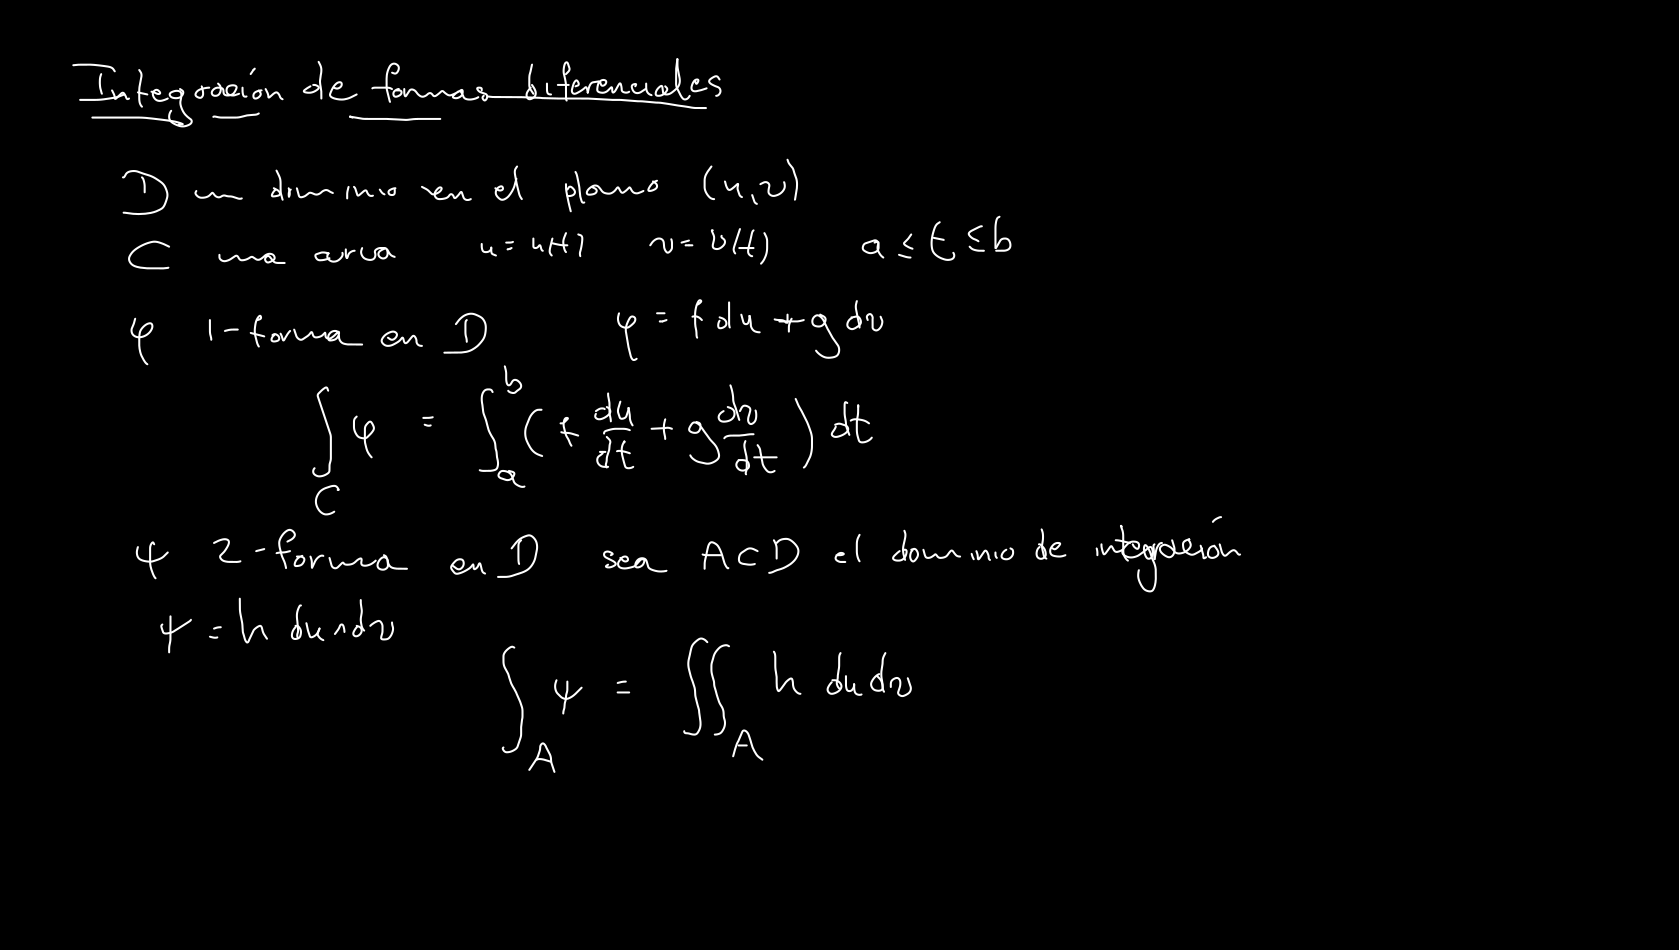 Integración de formas diferenciales
D un dominio en el plano (u,v)
C una curva u = u(t) v = v(t) a ≤ t ≤ b
φ 1-forma en D φ = f du + g dv
∫_C φ = ∫_a^b (f du/dt + g dv/dt) dt
ψ 2-forma en D sea A⊂D el dominio de integración
ψ = h du∧dv
∫_A ψ = ∬_A h du dv